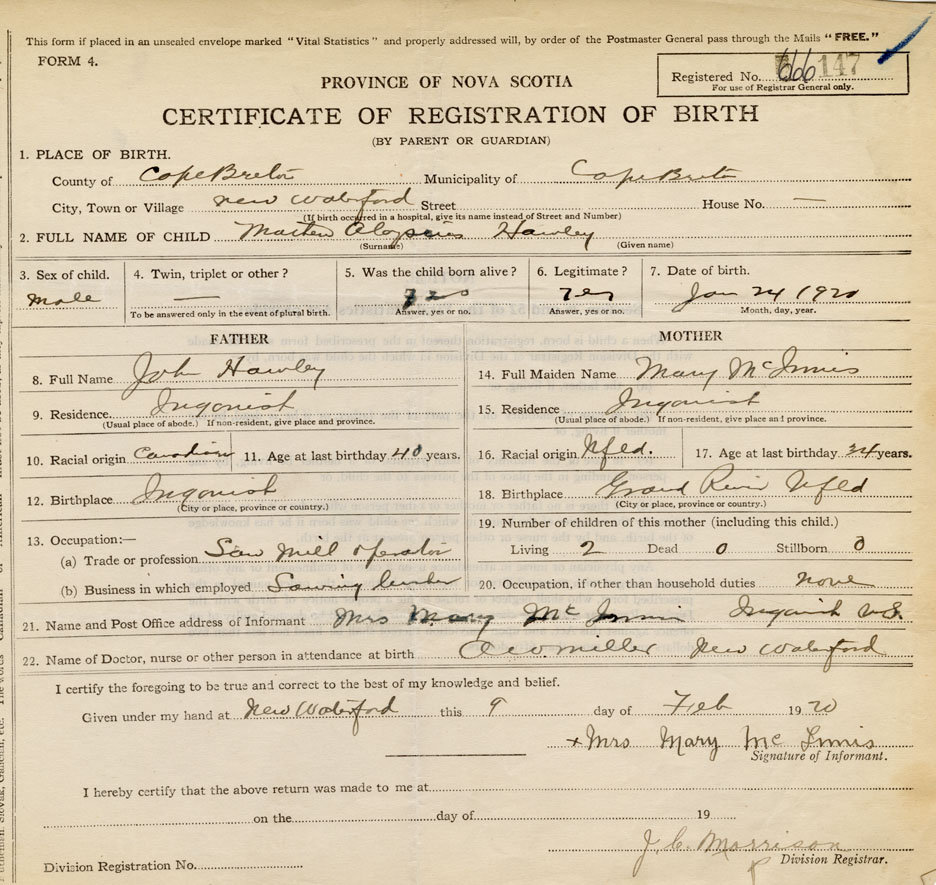 This form if placed in an unsealed envelope marked "Vital Statistics" and properly addressed will, by order of the Postmaster General pass through the Mails "FREE."
FORM 4.
Registered No. 666 147
For use of Registrar General only.
PROVINCE OF NOVA SCOTIA
CERTIFICATE OF REGISTRATION OF BIRTH
(BY PARENT OR GUARDIAN)
1. PLACE OF BIRTH.
County of Cape Breton Municipality of Cape Breton
City, Town or Village New Waterford Street House No. —
(If birth occurred in a hospital, give its name instead of Street and Number)
2. FULL NAME OF CHILD Aloysius Hawley
(Surname) (Given name)
3. Sex of child. 4. Twin, triplet or other? 5. Was the child born alive? 6. Legitimate? 7. Date of birth.
Male — yes Yes Jan 24 1920
To be answered only in the event of plural birth. Answer, yes or no. Answer, yes or no. Month, day, year.
FATHER
8. Full Name John Hawley
9. Residence. Ingonish
(Usual place of abode.) If non-resident, give place and province.
10. Racial origin Canadian 11. Age at last birthday 40 years.
12. Birthplace Ingonish
(City or place, province or country.)
13. Occupation:—
(a) Trade or profession Saw Mill Operator
(b) Business in which employed Sawing lumber
MOTHER
14. Full Maiden Name Mary McInnis
15. Residence Ingonish
(Usual place of abode.) If non-resident, give place and province.
16. Racial origin Nfld. 17. Age at last birthday 34 years.
18. Birthplace Grand River Nfld
(City or place, province or country.)
19. Number of children of this mother (including this child.)
Living 2 Dead 0 Stillborn 0
20. Occupation, if other than household duties none
21. Name and Post Office address of Informant Mrs Mary McInnis Ingonish N.S.
22. Name of Doctor, nurse or other person in attendance at birth Miller New Waterford
I certify the foregoing to be true and correct to the best of my knowledge and belief.
Given under my hand at New Waterford this 9 day of Feb 1920
+ Mrs Mary McInnis
Signature of Informant.
I hereby certify that the above return was made to me at
on the day of 19
J. C. Morrison
Division Registrar.
Division Registration No.